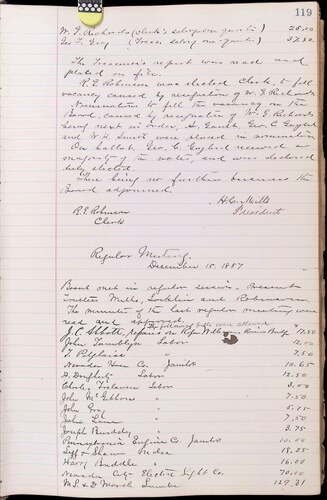 119
W. F. Richards (Clerk's salary one quarter) 25.00
Geo. F. Guy (Treas. salary one quarter) 37.50
The Treasurer's report was read and
placed on file.
R. E. Robinson was elected Clerk, to fill
vacancy caused by resignation of W. F. Richards
Nominations to fill the vacancy on the
Board, caused by resignation of W. F. Richards
being next in order, Gault, Geo. C. Gaylord
and W. H. Smith were placed in nomination
On ballot, Geo. C. Gaylord received a
majority of the votes, and was declared
duly elected.
There being no further business the
Board adjourned.
H. C. Mills
R. E. Robinson President
Clerk
Regular Meeting.
December 15, 1887
Board met in regular session. Present
Trustees Mills, Locklin and Robinson
The minutes of the last regular meeting were
read and approved.
The following bills were allowed
J. C. Abbott, repairs on 17.50
John Tamblyn Labor 12.00
7.50
Nevada Hose Co. Janitor 10.65
Labor 12.50
Charles Labor 3.00
John McGibbon " 7.50
John " 5.75
John Lane " 7.50
Joseph " 3.75
Pennsylvania Engine Co. Janitor 10.00
18.25
Harry 16.00
Nevada City Electric Light Co. 70.00
M. S. & D. Marsh Lumber 129.31